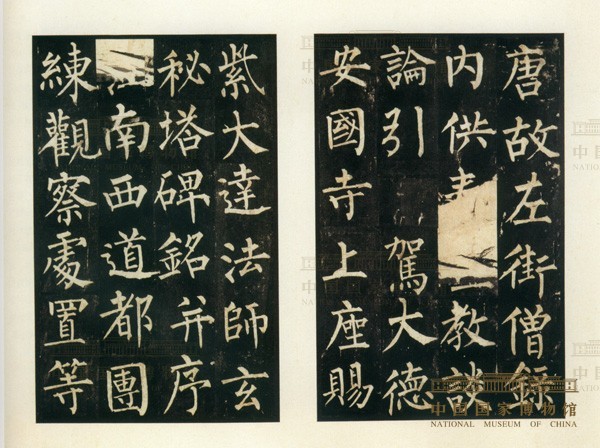 唐故左街僧錄
內供 教談
論引 駕大德
安國寺上座賜
紫大達法師玄
秘塔碑銘并序
南西道都團
練觀察處置等
中国国家博物馆
NATIONAL MUSEUM OF CHINA